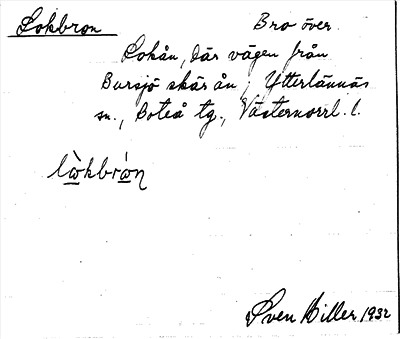 Lokbron Bro över
Lokån, där vägen från
Bursjö skär ån, Ytterlännäs
sn., Boteå tg., Västernorrl. l.
lòkbrón
Sven Hiller 1932